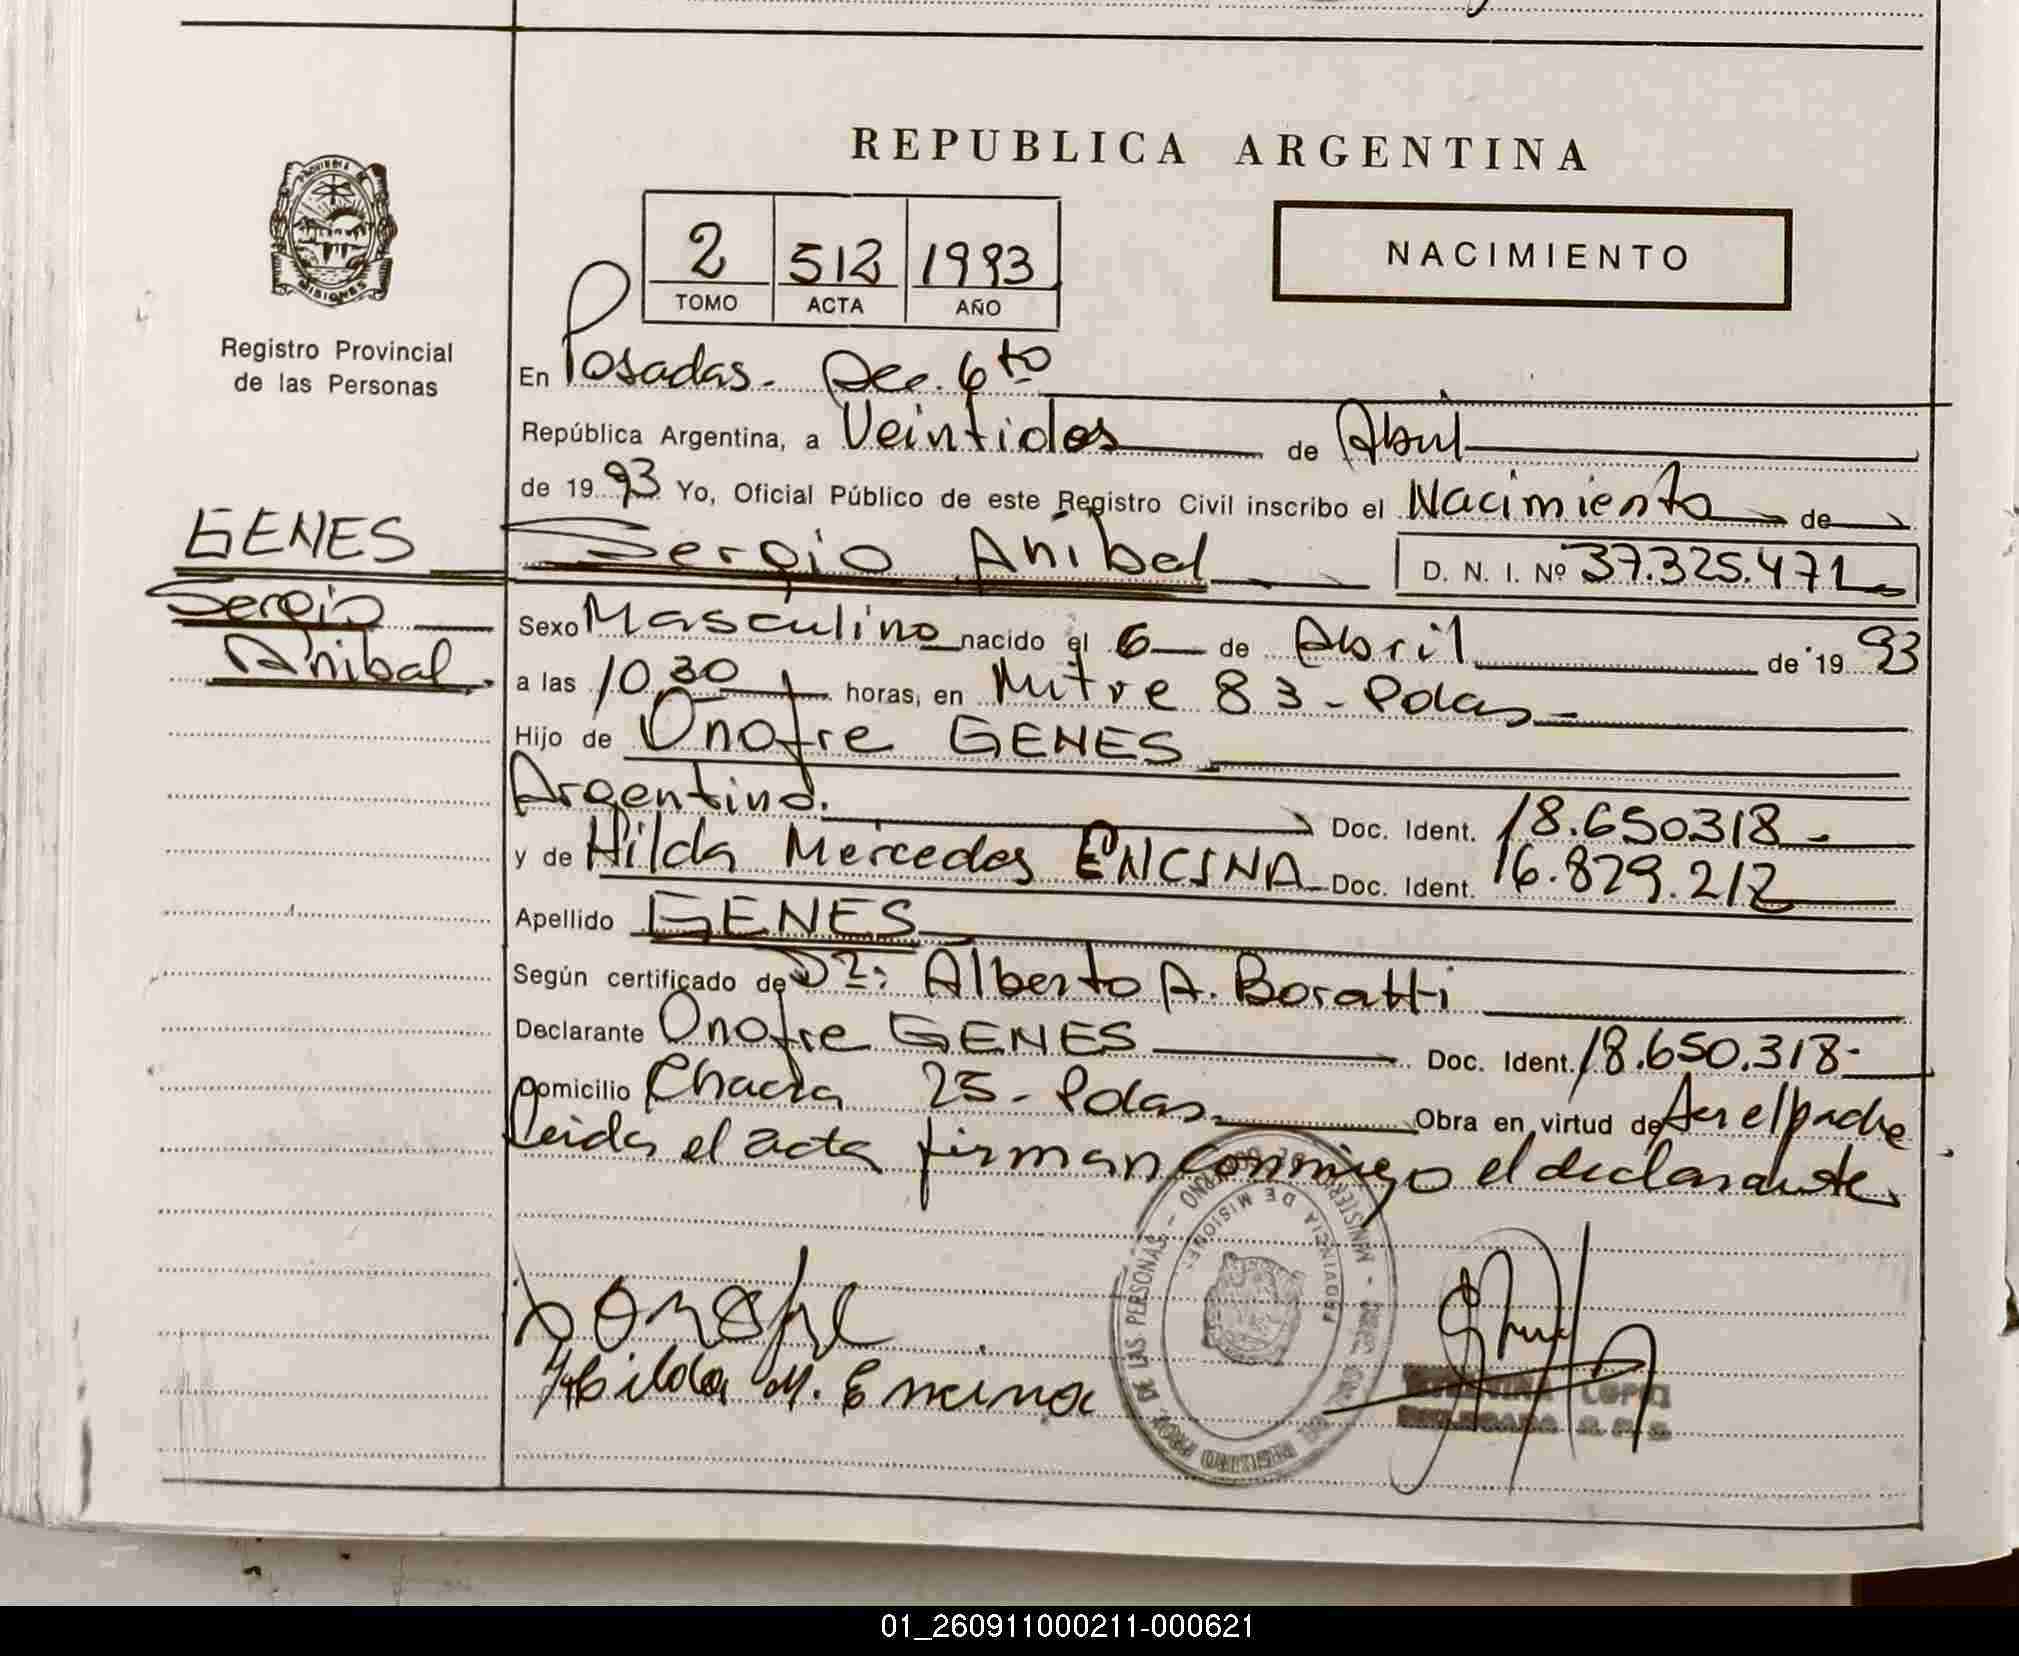 REPUBLICA ARGENTINA
PROVINCIA DE
MISIONES
Registro Provincial
de las Personas
2 512 1993
TOMO ACTA AÑO
NACIMIENTO
En Posadas. Dec. 6to
República Argentina, a Veintidos de Abril
de 1993 Yo, Oficial Público de este Registro Civil inscribo el Nacimiento de
GENES
Sergio
Anibal
Sergio Anibal D. N. I. Nº 37.325.471
Sexo Masculino nacido el 6 de Abril de 1993
a las 10 30 horas, en Mitre 83 - Pdas -
Hijo de Onofre GENES
Argentino. Doc. Ident. 18.650318 -
y de Hilda Mercedes ENCINA Doc. Ident. 16.829.212
Apellido GENES
Según certificado de Dr: Alberto A. Boratti
Declarante Onofre GENES Doc. Ident. 18.650.318-
Domicilio Chacra 25 - Pdas. Obra en virtud de ser el padre
Leida el acta firman conmigo el declarante
Hilda M. Encina
MINISTERIO DE GOBIERNO - DE LAS PERSONAS
PROVINCIA DE MISIONES
LOPEZ
DELEGADA R. P. P.
01_260911000211-000621